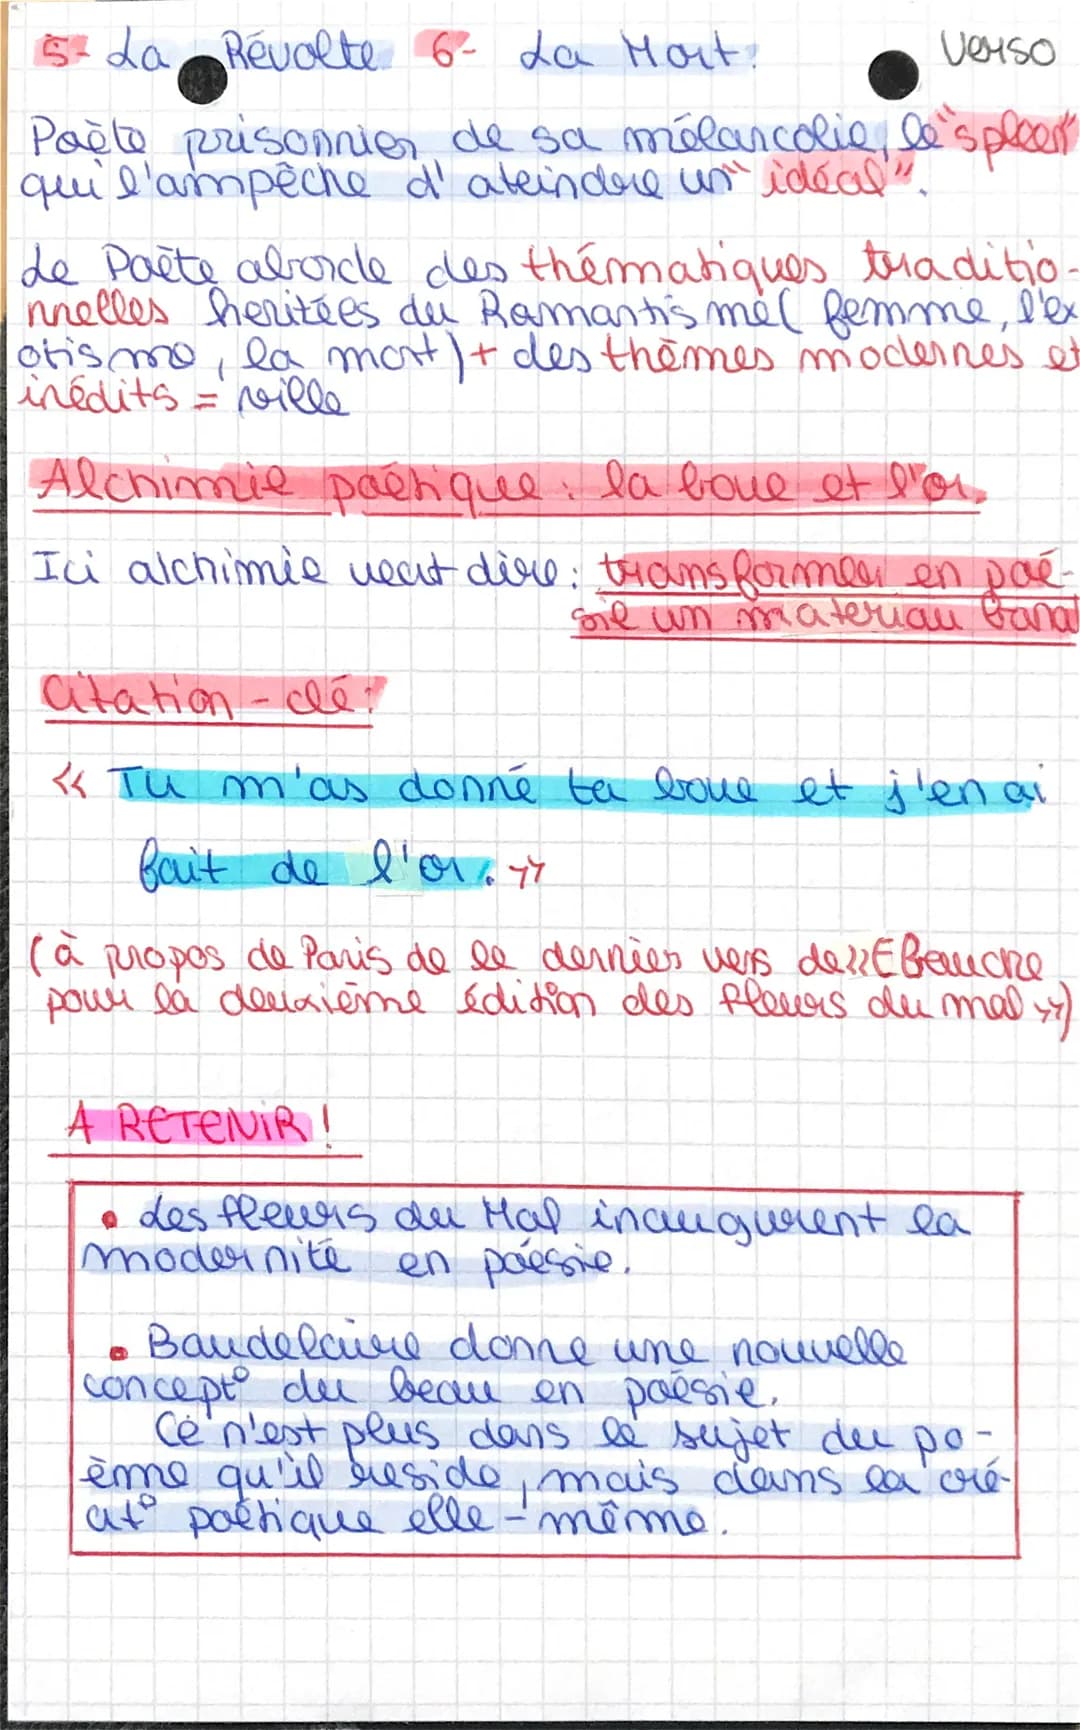 5- La Révolte 6- La Mort. Verso
Poète prisonnier de sa mélancolie, le "spleen"
qui l'ampêche d'ateindre un "idéal".
Le Poète aborde des thématiques traditio-
nnelles heritées du Romantisme( femme, l'ex
otisme, la mort)+ des thèmes modernes et
inédits = ville
Alchimie poétique : la boue et l'or.
Ici alchimie veut dire : transformer en poé-
sie un materiau banal
Citation-clé :
« Tu m'as donné ta boue et j'en ai
fait de l'or. »
(à propos de Paris de le dernier vers de «Ebauche
pour la deuxième édition des fleurs du mal »)
A RETENIR !
• Les fleurs du Mal inaugurent la
modernité en poésie.
• Baudelaire donne une nouvelle
concept° du beau en poésie.
Ce n'est plus dans le sujet du po-
ème qu'il reside, mais dans la cré-
at° poétique elle-même.